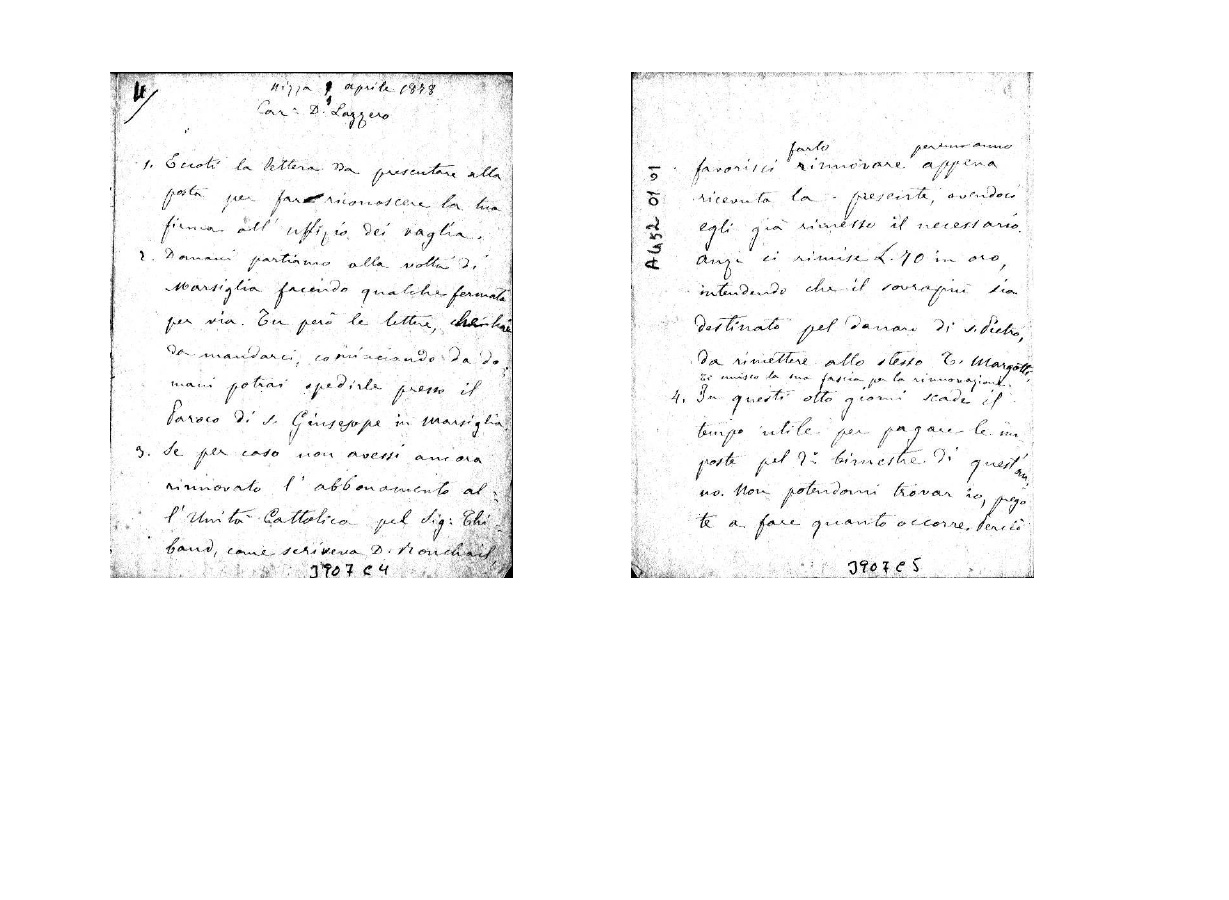 4/
Nizza 9 aprile 1878
Car.º D. Lazzero
1. Eccoti la lettera da presentare alla
posta per far riconoscere la tua
firma all' uffizio dei vaglia.
2. Domani partiamo alla volta di
Marsiglia facendo qualche fermata
per via. Tu però le lettere, che hai
da mandarci, cominciando da do-
mani potrai spedirle presso il
Paroco di S. Giuseppe in Marsiglia.
3. Se per caso non avessi ancora
rinnovato l' abbonamento al-
l' Unità Cattolica pel Sig: Thi-
baud, come scriveva D. Ronchail
3907 C 4
A452 01 01
farlo per un anno
favorisci rinnovare appena
ricevuta la presente, avendoci
egli già rimesso il necessario,
anzi ci rimise L. 40 in oro,
intendendo che il sovrapiù sia
destinato pel danaro di S. Pietro,
da rimettere allo stesso T. Margotti.
Ti unisco la sua fascia per la rinnovazione.
4. In questi otto giorni scade il
tempo utile per pagare le im
poste pel 2º bimestre di quest'an
no. Non potendomi trovar io, prego
te a fare quanto occorre. Perciò
3907 C 5